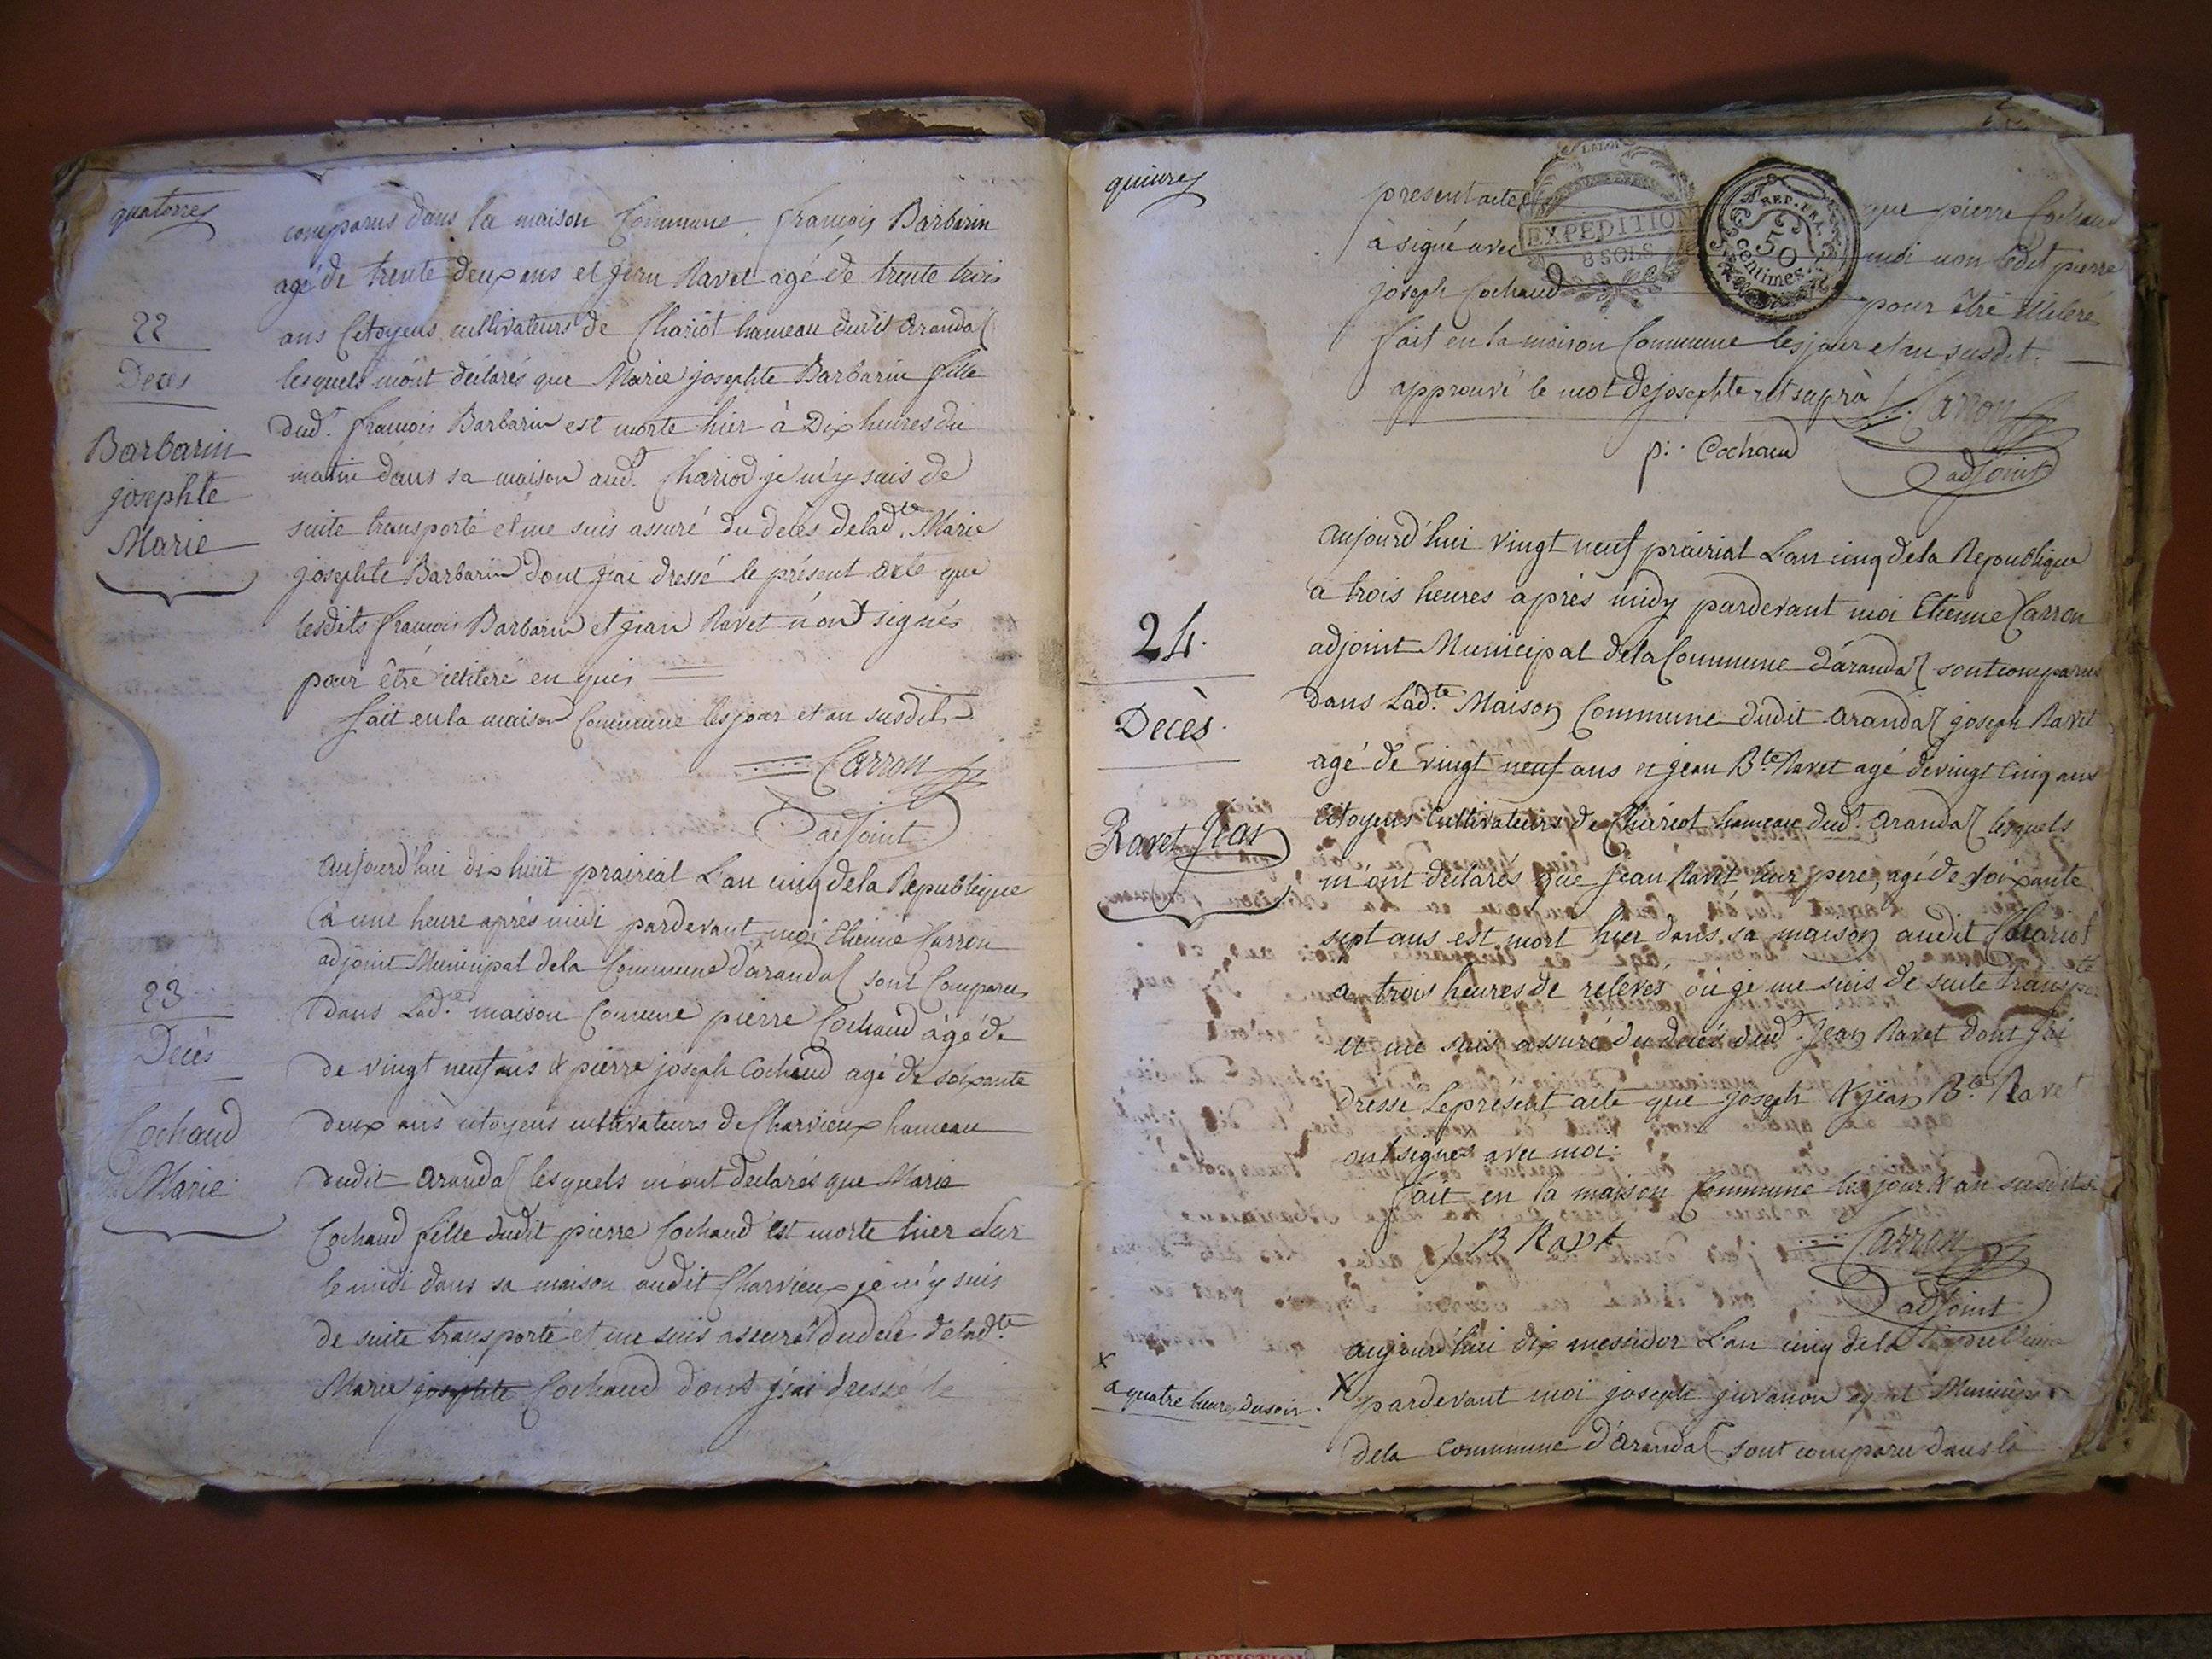 quatorze
comparus dans la maison Commune, françois Barbarin
agé de trente deux ans et jean Ravet agé de trente trois
ans Citoyens cultivateurs de Chariot hameau dudit aranda
lesquels m'ont déclarés que Marie josephte Barbarin fille
dud.t françois Barbarin est morte hier à Dix heures du
matin dans sa maison aud.t Chariod je m'y suis de
suite transporté et me suis assuré du deces de lad.te Marie
josephte Barbarin dont j'ai dressé le présent acte que
lesdits françois Barbarin et jean Ravet n'ont signés
pour être illiteré enquis
fait en la maison Commune les jour et an susdit
Carron
adjoint
22
Decès
Barbarin
josephte
Marie
aujourd'hui dix huit prairial L'an cinq de la Republique
à une heure après midi pardevant moi Etienne Carron
adjoint Municipal de la Commune d'aranda sont Comparus
dans Lad.te maison Comune pierre Cochaud âgé de
de vingt neuf ans & pierre joseph Cochaud agé de soixante
deux ans citoyens cultivateurs de Charvieux hameau
dudit aranda lesquels m'ont déclarés que Marie
Cochaud fille dudit pierre Cochaud est morte hier sur
le midi dans sa maison audit Charvieux je m'y suis
de suite transporté et me suis asseuré du deces de lad.te
Marie josephte Cochaud dont j'ai dressé le
23
Decès
Cochaud
Marie
quinze
present acte que pierre Cochaud
à signé avec moi non ledit pierre
joseph Cochaud pour être illiteré
fait en la maison Commune les jour et an susdit.
approuvé le mot de josephte ut suprà
Carron
p: Cochaud
adjoint
LA LOI
EXPÉDITION
8 SOLS
REP. FRA.
50
Centimes
aujourd'hui vingt neuf prairial L'an cinq de la Republique
a trois heures après midy pardevant moi Etienne Carron
adjoint Municipal de la Commune d'aranda sont comparus
dans Lad.te Maison Commune dudit aranda joseph Ravet
agé de vingt neuf ans et jean B.te Ravet agé de vingt Cinq ans
Citoyens Cultivateurs de Chariot hameau dud.t aranda lesquels
m'ont déclarés que jean Ravet, leur pere, agé de soixante
sept ans est mort hier dans sa maison audit Chariot
a trois heures de relevés où je me suis de suite transporté
et me suis assuré du deces dud.t jean Ravet dont j'ai
dressé Le présent acte que joseph & jean B.te Ravet
ont signés avec moi.
fait en la maison Commune les jour & an susdits
J B Ravet
Carron
adjoint
24.
Decès.
Ravet Jean
aujourd'hui dix messidor L'an cinq de la Republique
x
a quatre heures du soir.
X pardevant moi joseph juvanon agent Municipal
de la Commune d'aranda sont comparu dans la